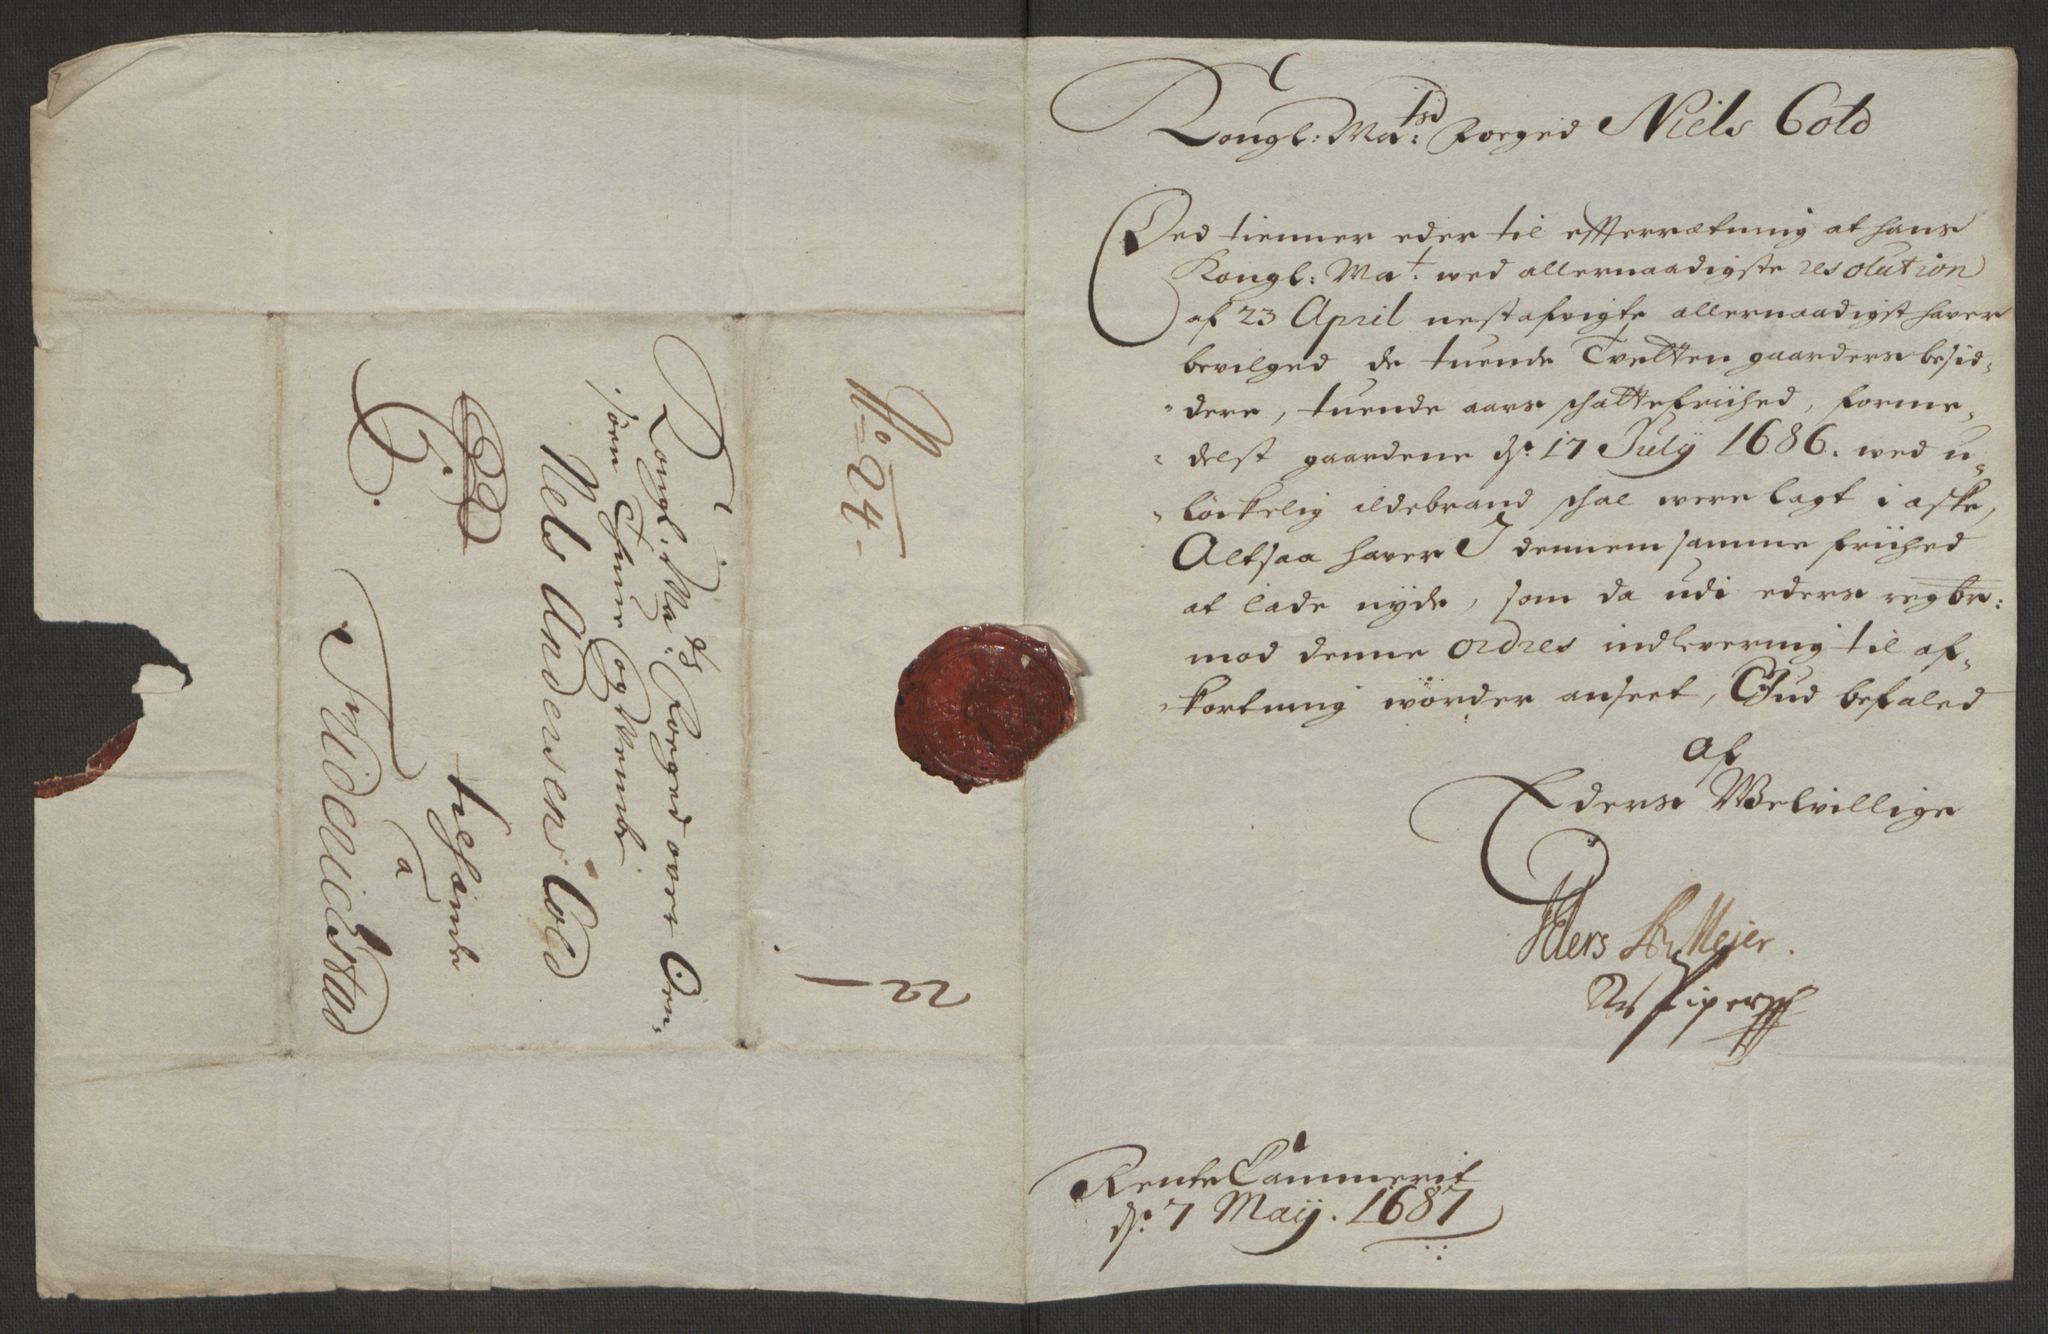 Kongl: Ma:tsd Foeged Niels Cold
Ded tienner eder til effterrætning at hans
Kongl: Ma:t wed allernaadigste resolution
af 23 April nest afvigte allernaadigst haver
bevilged de tuende Tvetten gaarders besid=
=dere, tuende aars schattefriihed, forme=
=delst gaardene d: 17 July 1686. wed u=
=løckelig ildebrand schal were lagt i aske,
Altsaa haver I dennem samme friihed
at lade nyde, som da udi eders regbr:
mod denne ordres indlevering til af=
=kortning worder anseet, Gud befaled
af
Eders Welvillige
Meier.
Rente Cammerit
d: 7 Maij. 1687
No 24.
22
Kongl: Ma:ds Foeged over
Niels Andersen Cold
a
Friderichstad